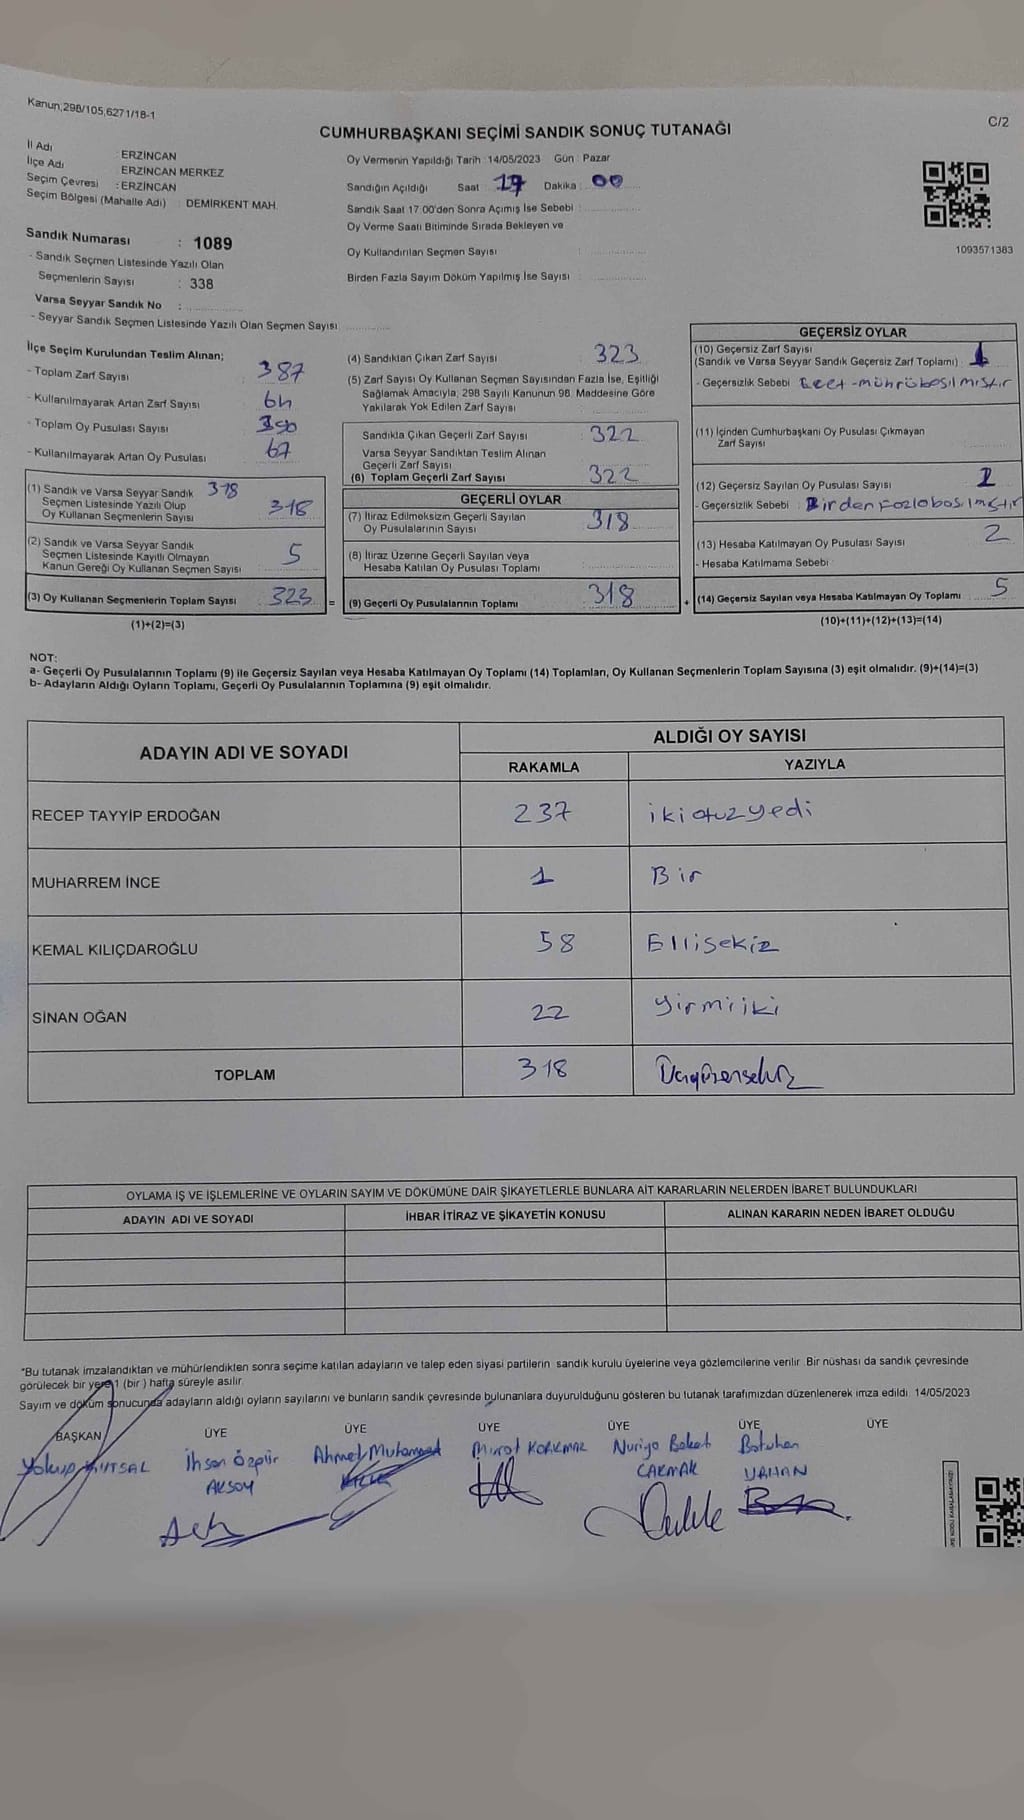 Kanun;298/105,6271/18-1
C/2
CUMHURBAŞKANI SEÇİMİ SANDIK SONUÇ TUTANAĞI
İl Adı : ERZİNCAN
İlçe Adı : ERZİNCAN MERKEZ
Seçim Çevresi : ERZİNCAN
Seçim Bölgesi (Mahalle Adı) : DEMİRKENT MAH.
Sandık Numarası : 1089
- Sandık Seçmen Listesinde Yazılı Olan
Seçmenlerin Sayısı : 338
Varsa Seyyar Sandık No :
- Seyyar Sandık Seçmen Listesinde Yazılı Olan Seçmen Sayısı
Oy Vermenin Yapıldığı Tarih : 14/05/2023 Gün : Pazar
Sandığın Açıldığı Saat 17 Dakika : 00
Sandık Saat 17:00'den Sonra Açımış İse Sebebi :
Oy Verme Saati Bitiminde Sırada Bekleyen ve
Oy Kullandırılan Seçmen Sayısı :
Birden Fazla Sayım Döküm Yapılmış İse Sayısı :
1093571383
İlçe Seçim Kurulundan Teslim Alınan;
- Toplam Zarf Sayısı : 387
- Kullanılmayarak Artan Zarf Sayısı : 64
- Toplam Oy Pusulası Sayısı : 390
- Kullanılmayarak Artan Oy Pusulası : 67
(1) Sandık ve Varsa Seyyar Sandık 318
Seçmen Listesinde Yazılı Olup
Oy Kullanan Seçmenlerin Sayısı 318
(2) Sandık ve Varsa Seyyar Sandık
Seçmen Listesinde Kayıtlı Olmayan
Kanun Gereği Oy Kullanan Seçmen Sayısı 5
(3) Oy Kullanan Seçmenlerin Toplam Sayısı 323 =
(1)+(2)=(3)
(4) Sandıktan Çıkan Zarf Sayısı : 323
(5) Zarf Sayısı Oy Kullanan Seçmen Sayısından Fazla İse, Eşitliği
Sağlamak Amacıyla; 298 Sayılı Kanunun 98. Maddesine Göre
Yakılarak Yok Edilen Zarf Sayısı :
Sandıkta Çıkan Geçerli Zarf Sayısı : 322
Varsa Seyyar Sandıktan Teslim Alınan
Geçerli Zarf Sayısı :
(6) Toplam Geçerli Zarf Sayısı : 322
GEÇERLİ OYLAR
(7) İtiraz Edilmeksizin Geçerli Sayılan
Oy Pusulalarının Sayısı : 318
(8) İtiraz Üzerine Geçerli Sayılan veya
Hesaba Katılan Oy Pusulası Toplamı
(9) Geçerli Oy Pusulalarının Toplamı 318 +
GEÇERSİZ OYLAR
(10) Geçersiz Zarf Sayısı
(Sandık ve Varsa Seyyar Sandık Geçersiz Zarf Toplamı) : 1
- Geçersizlik Sebebi Evet - mührübasılmıştır
(11) İçinden Cumhurbaşkanı Oy Pusulası Çıkmayan
Zarf Sayısı
(12) Geçersiz Sayılan Oy Pusulası Sayısı
- Geçersizlik Sebebi : Birden Fazlabasılmıştır
(13) Hesaba Katılmayan Oy Pusulası Sayısı : 2
- Hesaba Katılmama Sebebi
(14) Geçersiz Sayılan veya Hesaba Katılmayan Oy Toplamı 5
(10)+(11)+(12)+(13)=(14)
NOT:
a- Geçerli Oy Pusulalarının Toplamı (9) ile Geçersiz Sayılan veya Hesaba Katılmayan Oy Toplamı (14) Toplamları, Oy Kullanan Seçmenlerin Toplam Sayısına (3) eşit olmalıdır. (9)+(14)=(3)
b- Adayların Aldığı Oyların Toplamı, Geçerli Oy Pusulalarının Toplamına (9) eşit olmalıdır.
ADAYIN ADI VE SOYADI
ALDIĞI OY SAYISI
RAKAMLA YAZIYLA
RECEP TAYYİP ERDOĞAN 237 ikiotuzyedi
MUHARREM İNCE 1 Bir
KEMAL KILIÇDAROĞLU 58 Ellisekiz
SİNAN OĞAN 22 yirmiiki
TOPLAM 318
OYLAMA İŞ VE İŞLEMLERİNE VE OYLARIN SAYIM VE DÖKÜMÜNE DAİR ŞİKAYETLERLE BUNLARA AİT KARARLARIN NELERDEN İBARET BULUNDUKLARI
ADAYIN ADI VE SOYADI İHBAR İTİRAZ VE ŞİKAYETİN KONUSU ALINAN KARARIN NEDEN İBARET OLDUĞU
*Bu tutanak imzalandıktan ve mühürlendikten sonra seçime katılan adayların ve talep eden siyasi partilerin sandık kurulu üyelerine veya gözlemcilerine verilir. Bir nüshası da sandık çevresinde
görülecek bir yere 1 (bir ) hafta süreyle asılır.
Sayım ve döküm sonucunda adayların aldığı oyların sayılarını ve bunların sandık çevresinde bulunanlara duyurulduğunu gösteren bu tutanak tarafımızdan düzenlenerek imza edildi. 14/05/2023
BAŞKAN ÜYE ÜYE ÜYE ÜYE ÜYE ÜYE
Yakup KUTSAL İhsan Özgür Ahmet Muhammed Murat KORKMAZ Nuriye Buket Batuhan
AKSOY ÇAKMAK URHAN